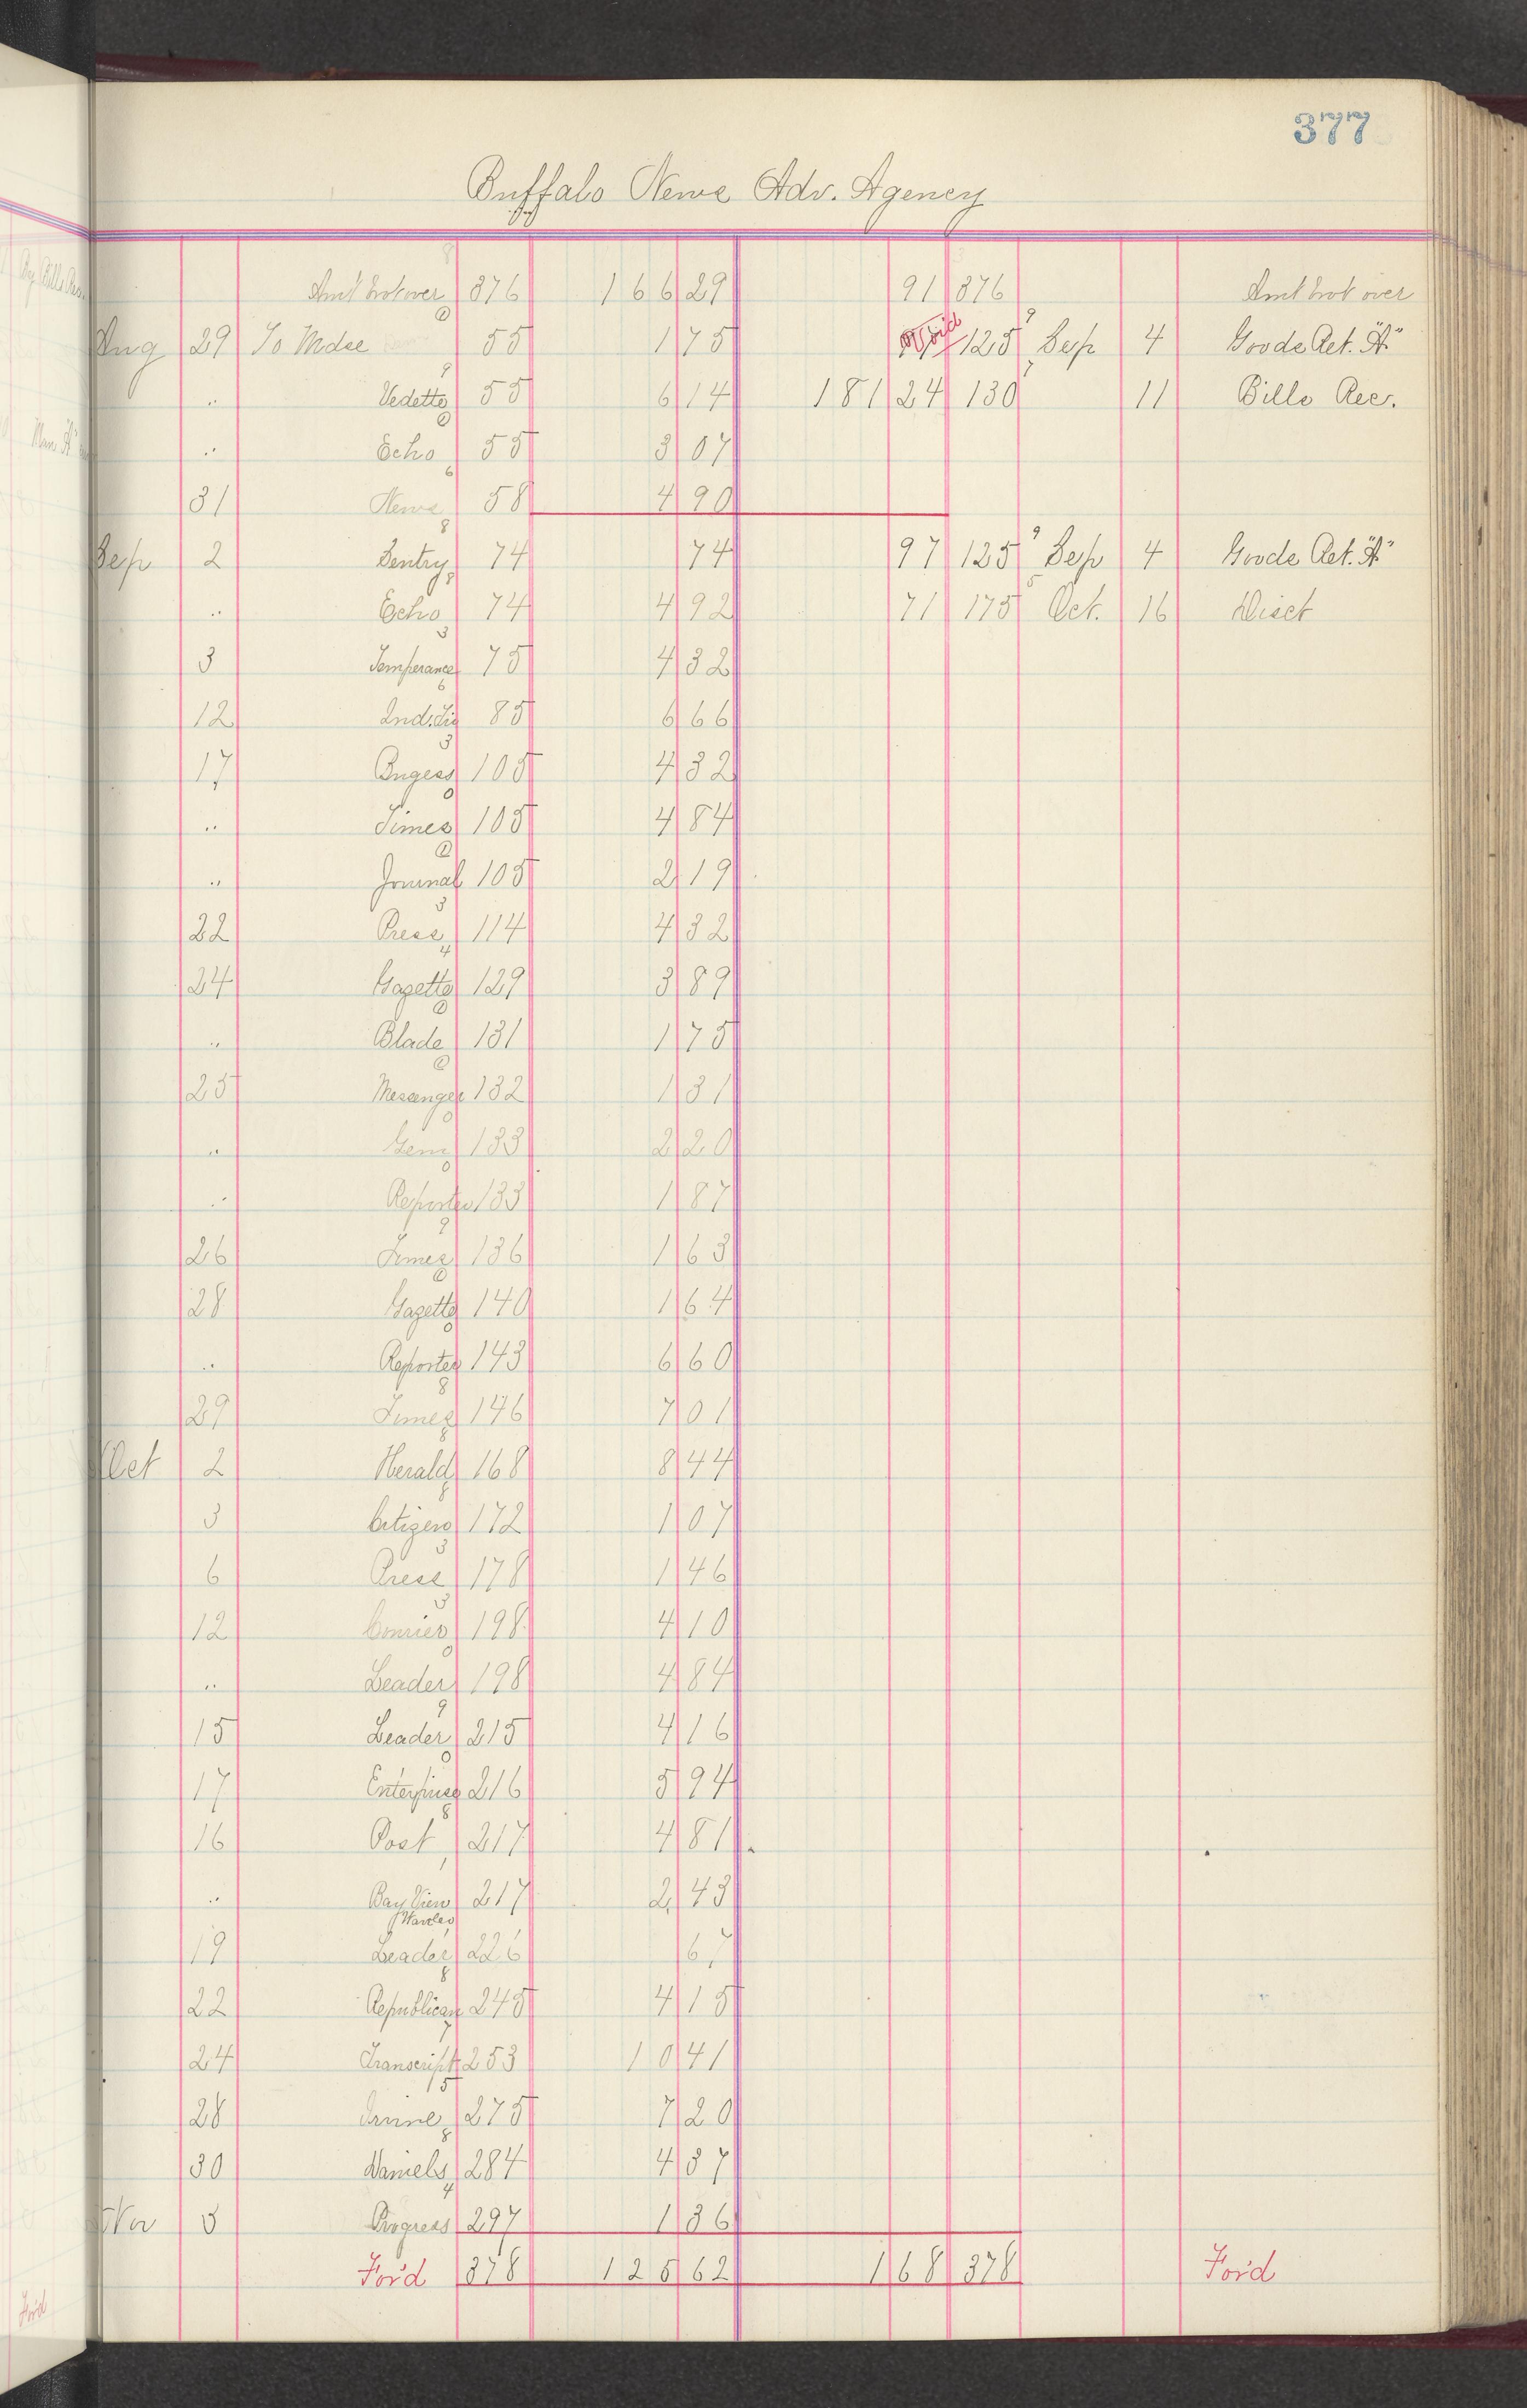 377
Buffalo News Adv. Agency
Amt brot over 376 166 29 91 376 Amt brot over
Aug 29 To Mdse 55 1 75 125 Sep 4 Goods Ret. "A"
" Vedette 55 6 14 181 24 130 11 Bills Rec.
" Echo 55 3 07
31 News 58 4 90
Sep 2 Sentry 74 74 97 125 Sep 4 Goods Ret. "A"
" Echo 74 4 92 71 175 Oct. 16 Disct
3 Temperance 75 4 32
12 Ind. 85 6 66
17 105 4 32
" Times 105 4 84
" Journal 105 2 19
22 Press 114 4 32
24 Gazette 129 3 89
" Blade 131 1 75
25 Messenger 132 1 31
" Gem 133 2 20
" Reporter 133 1 87
26 Times 136 1 63
28 Gazette 140 1 64
" Reporter 143 6 60
29 Times 146 7 01
Oct 2 Herald 168 8 44
3 Citizen 172 1 07
6 Press 178 1 46
12 Courier 198 4 10
" Leader 198 4 84
15 Leader 215 4 16
17 Enterprise 216 5 94
16 Post 217 4 81
" Bay View 217 2 43
19 Leader 226 67
22 Republican 245 4 15
24 Transcript 253 10 41
28 275 7 20
30 Daniels 284 4 37
Nov 3 Progress 297 1 36
Ford 378 125 62 1 68 378 Ford